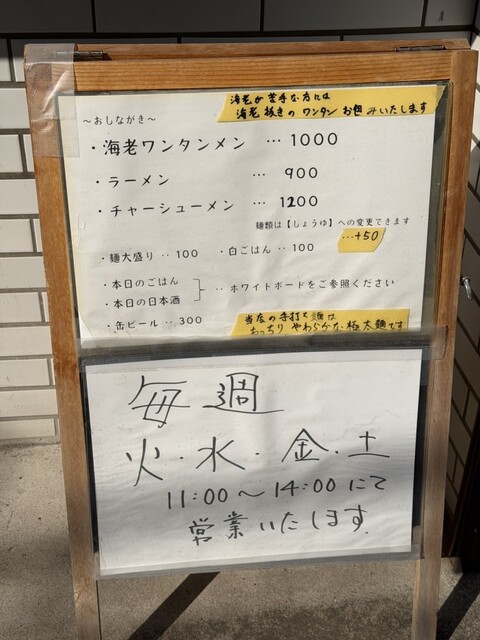 海老が苦手な方には
海老抜きのワンタンお包みいたします
～おしながき～
・海老ワンタンメン … 1000
・ラーメン … 900
・チャーシューメン … 1200
麺類は【しょうゆ】への変更できます
…+50
・麺大盛り ‥ 100 ・白ごはん ‥ 100
・本日のごはん
・本日の日本酒
‥ ホワイトボードをご参照ください
・缶ビール ‥ 300
当店の手打ち麺は
もっちりやわらかな極太麺です
毎週
火・水・金・土
11:00～14:00にて
営業いたします